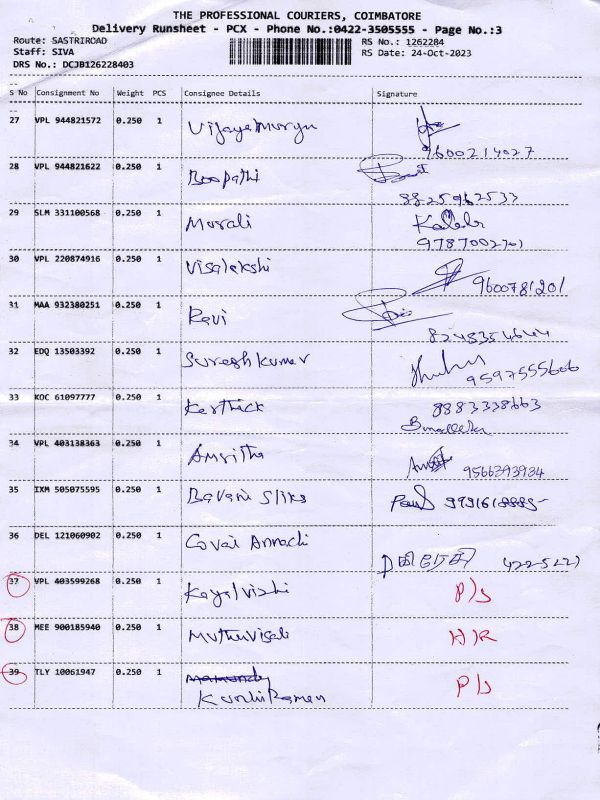 THE PROFESSIONAL COURIERS, COIMBATORE
Delivery Runsheet - PCX - Phone No.:0422-3505555 - Page No.:3
Route: SASTRIROAD
RS No.: 1262284
Staff: SIVA
RS Date: 24-Oct-2023
DRS No.: DCJB126228403
S No Consignment No Weight PCS Consignee Details Signature
27 VPL 944821572 0.250 1 Vijayamurgu
9600214027
28 VPL 944821622 0.250 1 Boopathi
8825962533
29 SLM 331100568 0.250 1 Murali
9787002701
30 VPL 220874916 0.250 1 Visalakshi
9600781201
31 MAA 932380251 0.250 1 Ravi
8248354644
32 EDQ 13503392 0.250 1 Sureshkumar
9597555606
33 KOC 61097777 0.250 1 Karthick 8883338663
34 VPL 403138363 0.250 1 Amritha
9566393934
35 IXM 505075595 0.250 1 Bavani Silks
36 DEL 121060902 0.250 1 Covai Annachi
37 VPL 403599268 0.250 1 Kayalvizhi P/s
38 MEE 900185940 0.250 1 Muthuvisali
39 TLY 10061947 0.250 1 P/s